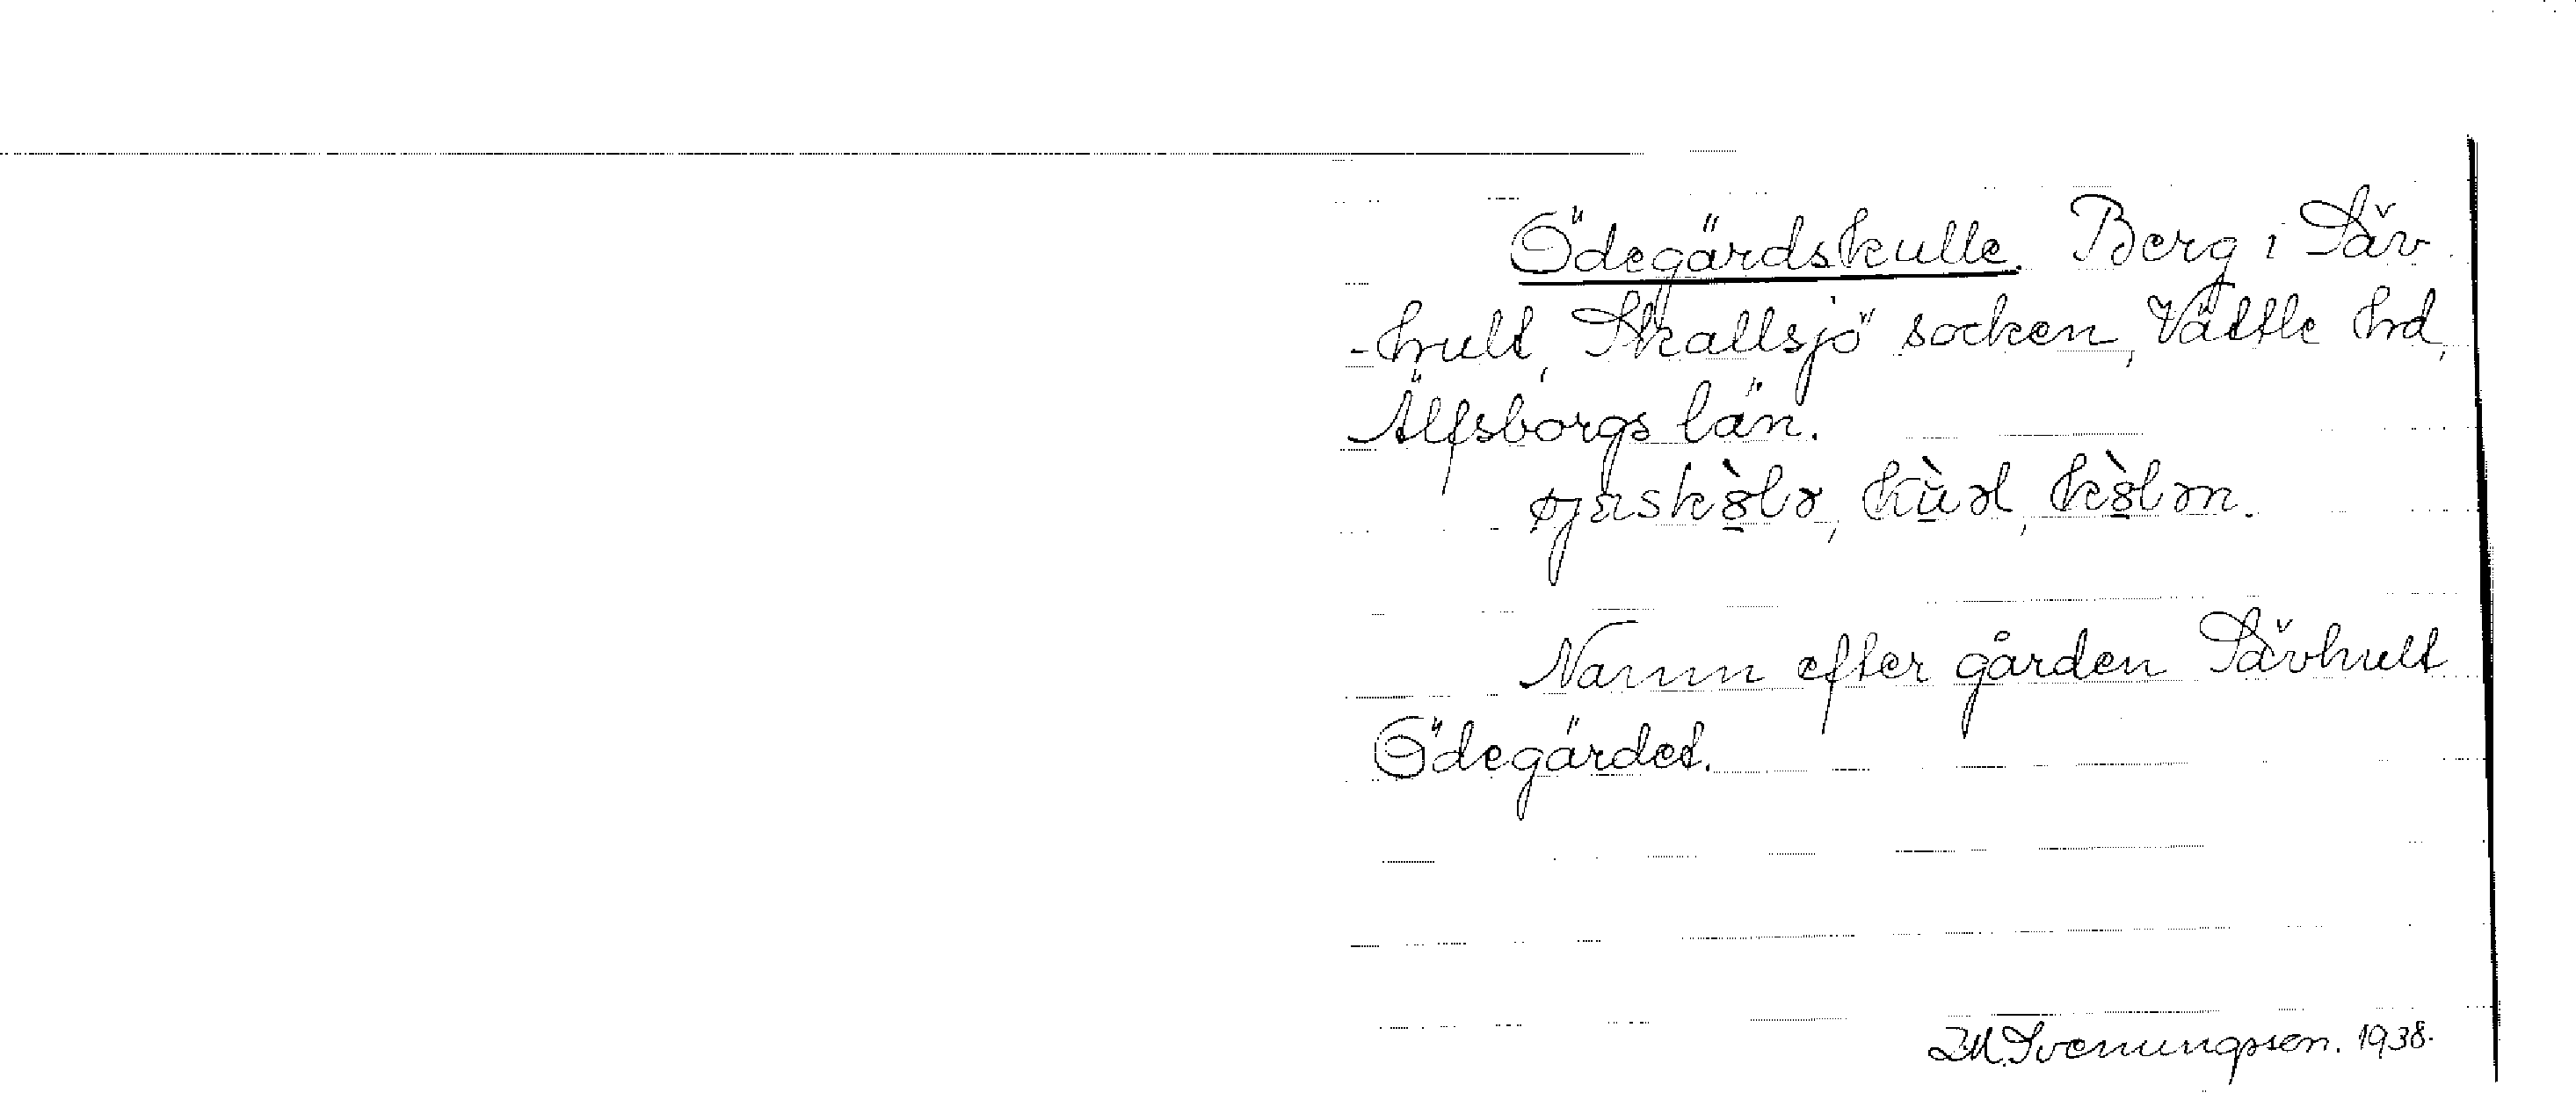 Ödegärdskulle. Berg i Säv
-hult, Skallsjö socken, Vättle hrd,
Älfsborgs län.
Namn efter gården Sävhult
Ödegärdet.
Svenungsson. 1938.